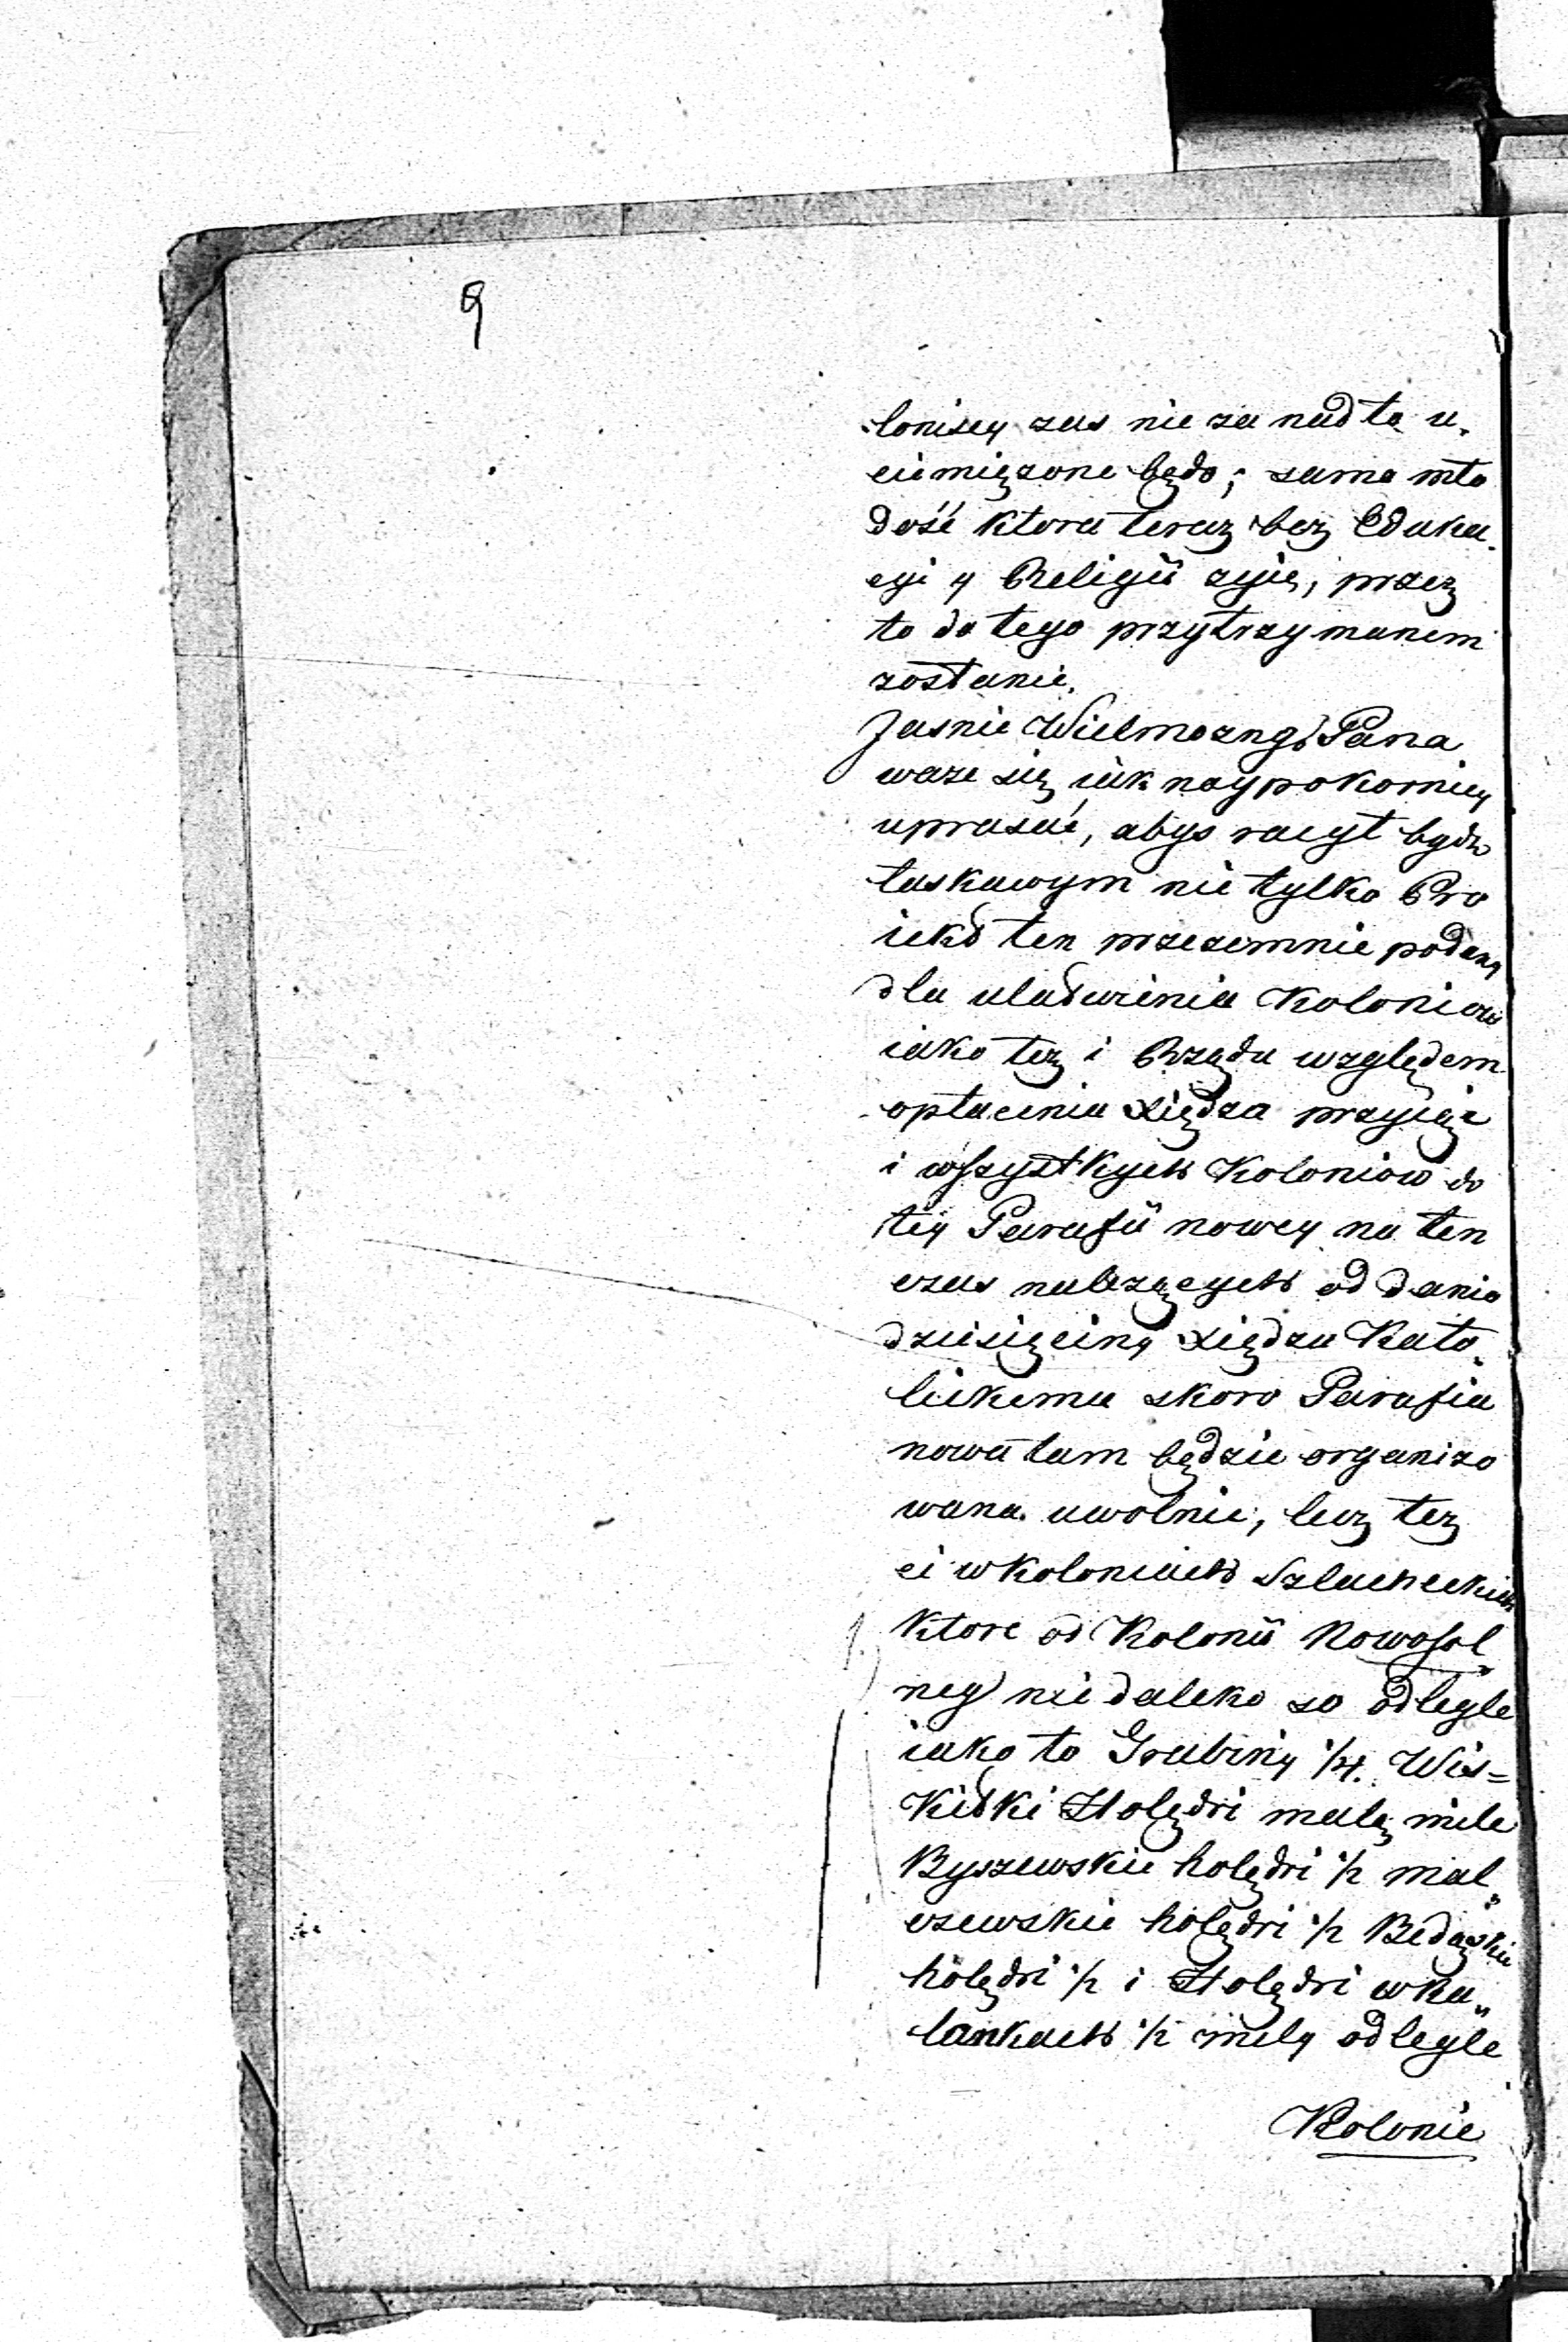 9
lonisey zas nie za nadto u-
ciemięzone będo; sama mło
dość ktora teraz bez Eduka-
cyi y Religii zyie, przez
to do tego przytrzymanem
zostanie.
Jasnie Wielmozngo Pana
waze się iak naypokorniey
uprasać, abys raczył bydz
łaskawym nie tylko Pro
iekt ten przezemnie podany
dla ulatwienia Koloniow
iako tez i Rządu względem
opłacenia Xiędza przyiąc
i wszystkych Koloniow do
tey Parafii nowey na ten
czas nalezących od dania
dziesięciny Xiędzu Kato-
likemu skoro Parafia
nowa tam będzie organizo
wana uwolnic, lecz tez
ci w Koloniach Szlacheckich
1.) Ktore od Kolonii Nowosol-
ney nie daleko so odlegle
iako to Grabiny 1/4. Wis=
Kitki Holędri malę mile
Byszewskie holędri 1/2 mal„
czewskie holędri 1/2 Bedoskie
holędri 1/2 i Holędri w Ka„
lankach 1/2 mily odlegle
Kolonie